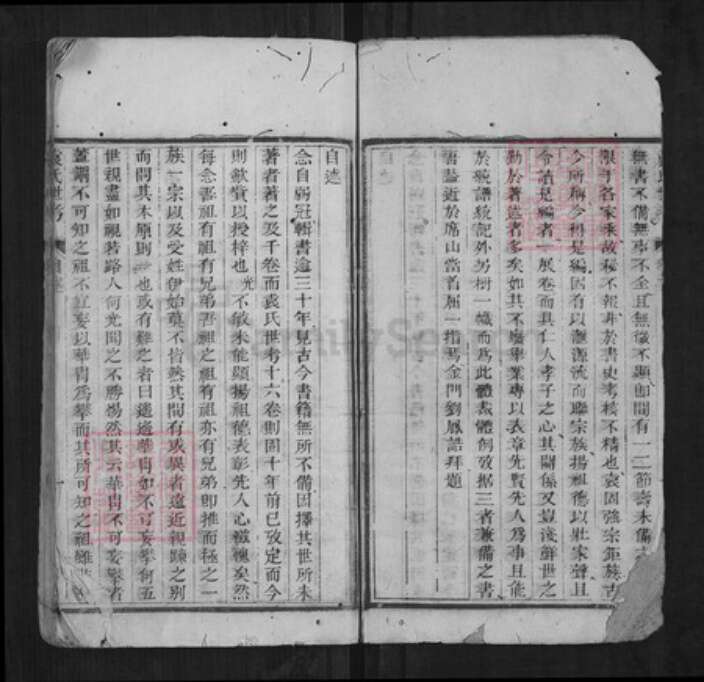 無書不備無事不全且無微不顯即間有一二節壽未備
限于各家乘故秘不報非於書史考核不精也袁固強宗鉅族古
今所稱今初是編固有以溯源流而聯宗族揚祖德以壯家聲且
令讀是編者一展卷而具仁人孝子之心其關係又豈淺鮮世之
勤於著述者多矣如其不廢舉業專以表章先賢先人爲事且能
於統譜統記外另樹一幟而爲此體裁體例攷據三者兼備之書
吾謂近於席山當首屈一指焉金門劉鳳誥拜題
自述
念自弱冠輯書逾三十年見古今書籍無所不備因擇其世所未
著者著之及千卷而袁氏世考十六卷則固十年前已攷定而今
則歛貲以授梓也光不敏未能顯揚祖德表彰先人心滋愧矣然
每念吾祖有祖有兄弟吾祖之祖有祖亦有兄弟即推而極之一
族一宗以及受姓伊始莫不皆然其間有或異者遠近親疎之別
而問其本原則一也或有難之者曰遙遙華冑如不可妄攀何五
世親盡如視若路人何光聞之不勝惕然其云華冑不可妄攀者
蓋謂不可知之祖不宜妄以華冑爲攀而其所可知之祖雖
袁氏世考 自述
FamilySearch